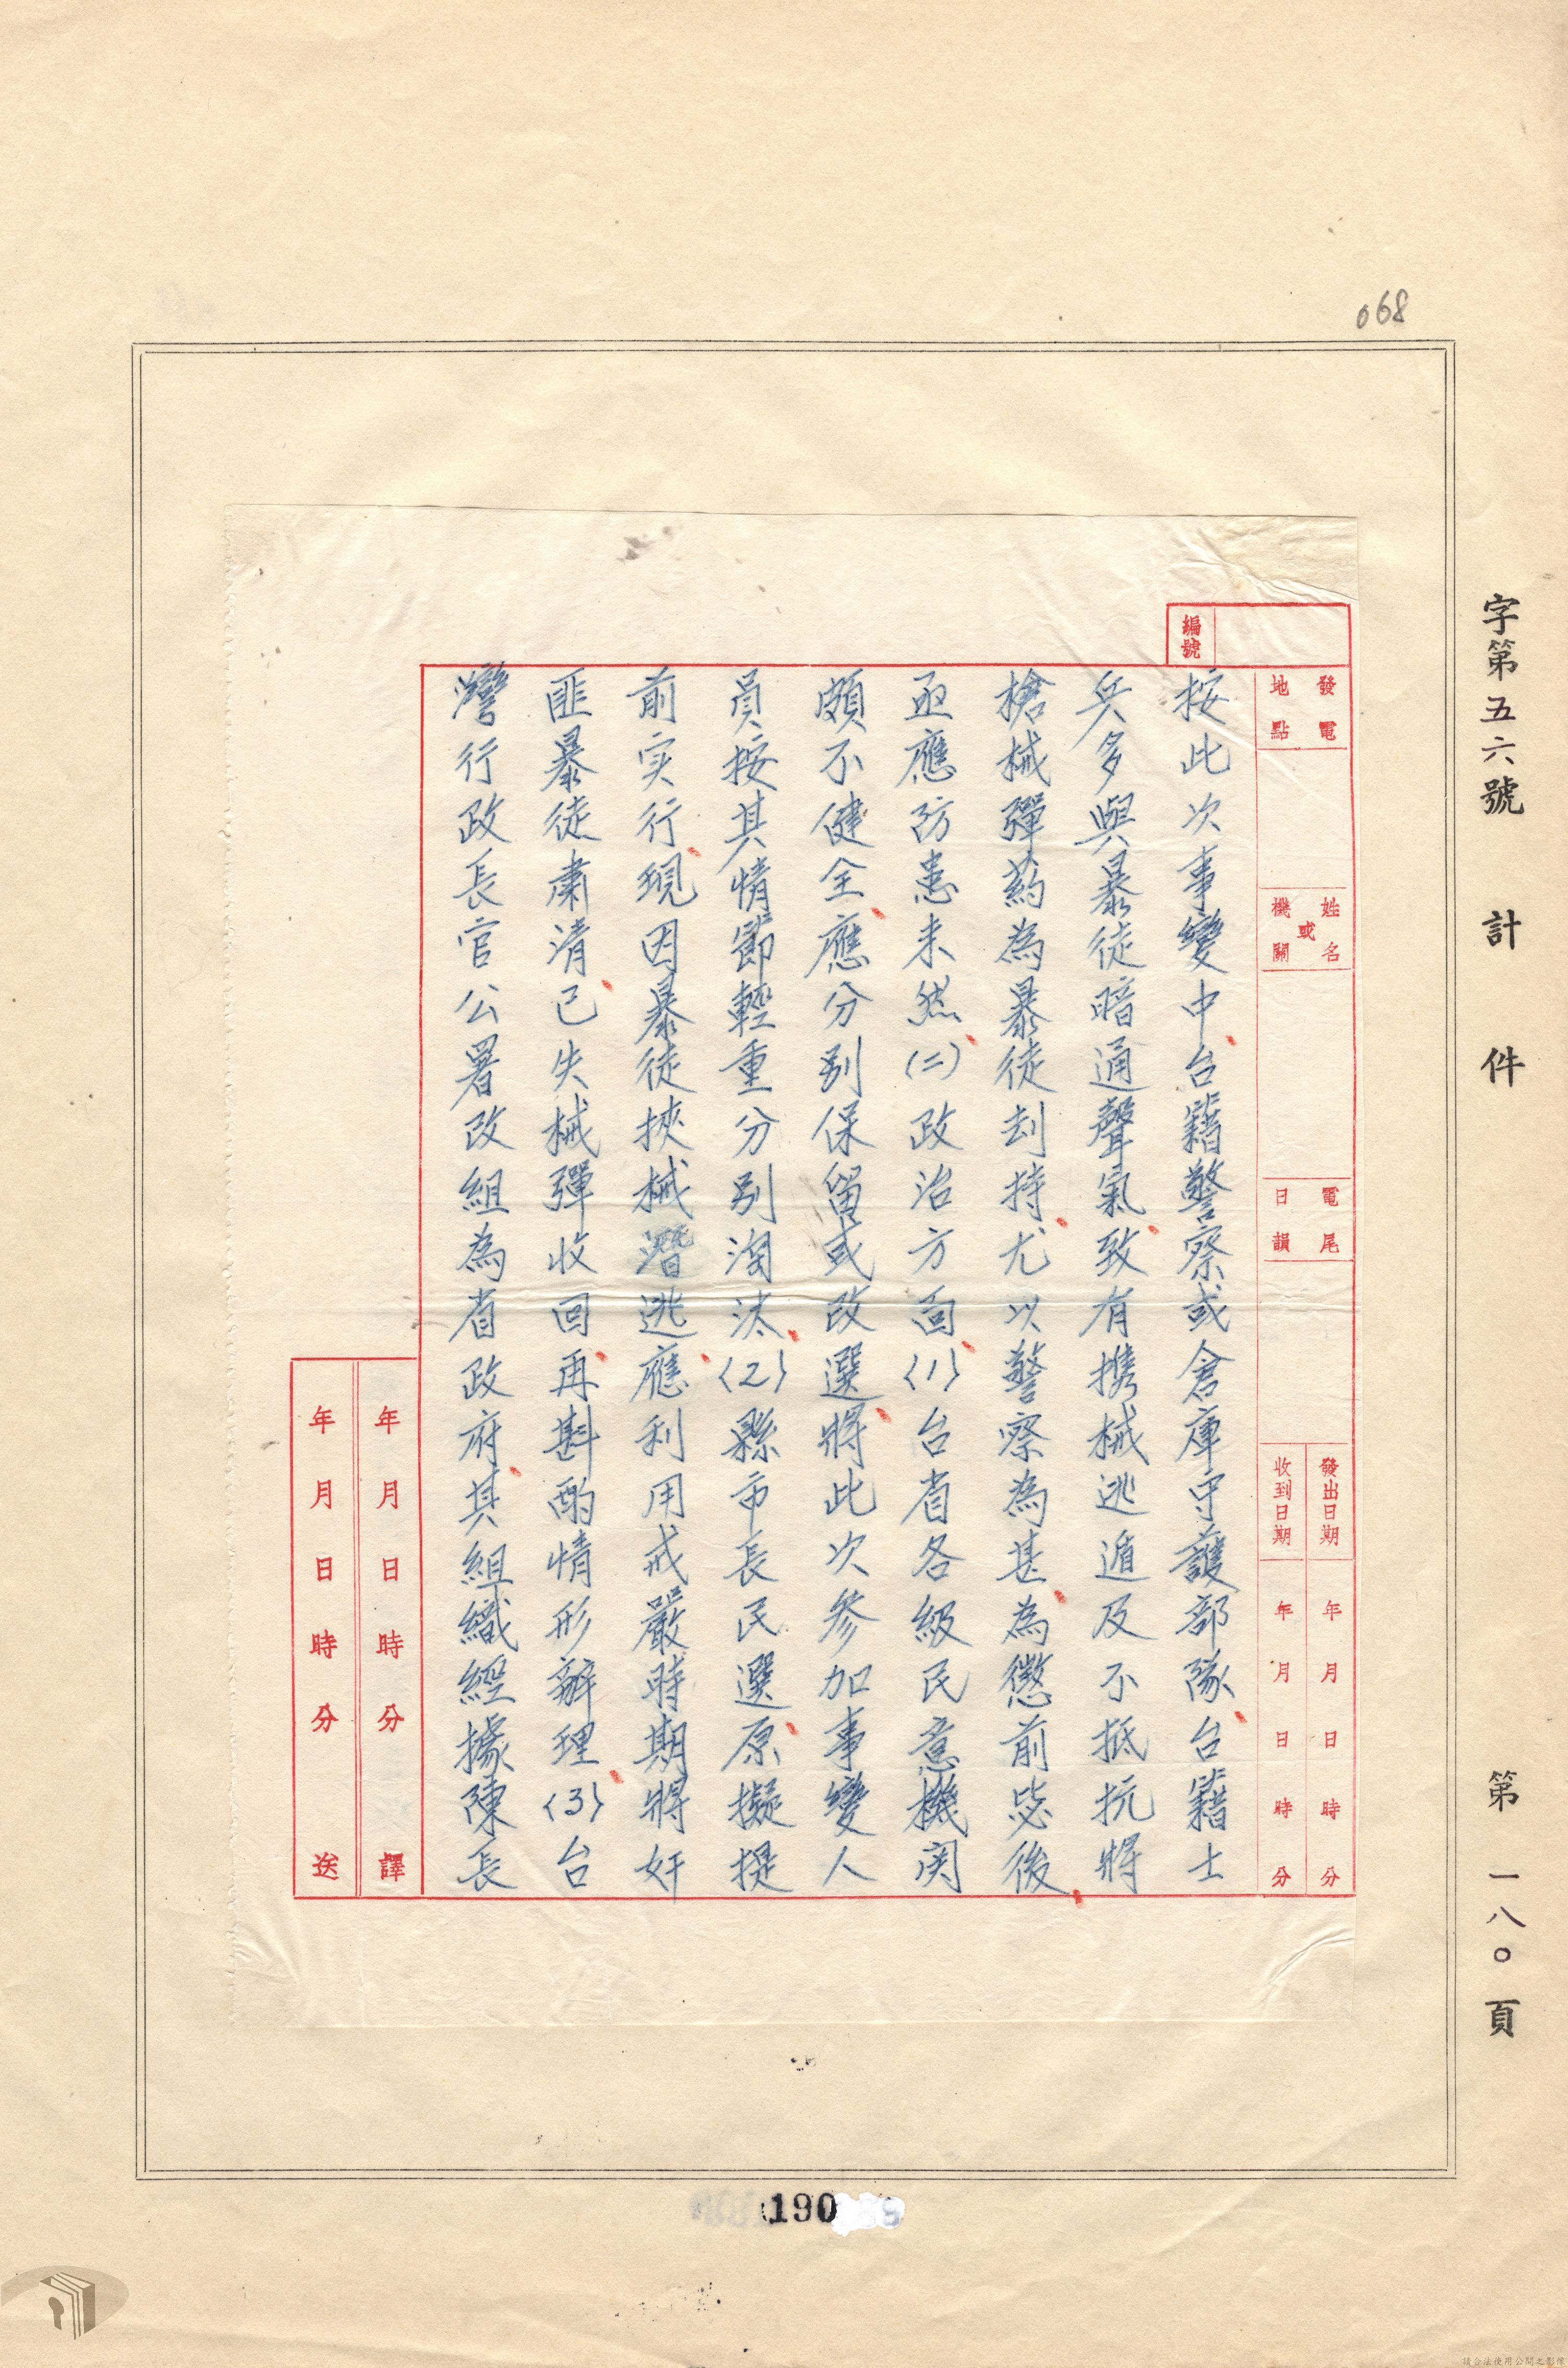 068
字第五六號 計 件 第一八〇頁
編號
發電地點
姓名或機關
電尾日韻
發出日期 年 月 日 時 分
收到日期 年 月 日 時 分
按此次事變中台籍警察或倉庫守護部隊台籍士
兵多與暴徒暗通聲氣致有攜械逃遁及不抵抗將
槍械彈葯為暴徒刦持尤以警察為甚為懲前毖後
亟應防患未然(二)政治方面〈1〉台省各級民意機関
頗不健全應分別保留或改選將此次參加事變人
員按其情節輕重分別淘汰〈2〉縣市長民選原擬提
前实行現因暴徒挾械潛逃應利用戒嚴時期將奸
匪暴徒肅清已失械彈收回再斟酌情形辦理〈3〉台
灣行政長官公署改組為省政府其組織經據陳長
年 月 日 時 分 譯
年 月 日 時 分 送
190
請合法使用公開之影像